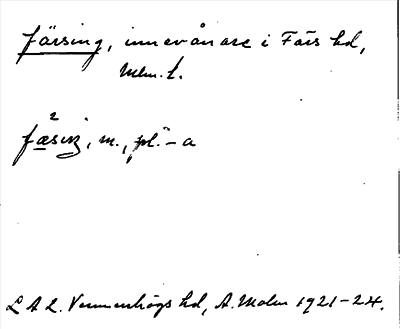 färsing, innevånare i Färs hd,
Mlm. l.
fæsiŋ, m., pl. -a
L A L. Vemmenhögs hd, A. Malm 1921-24.